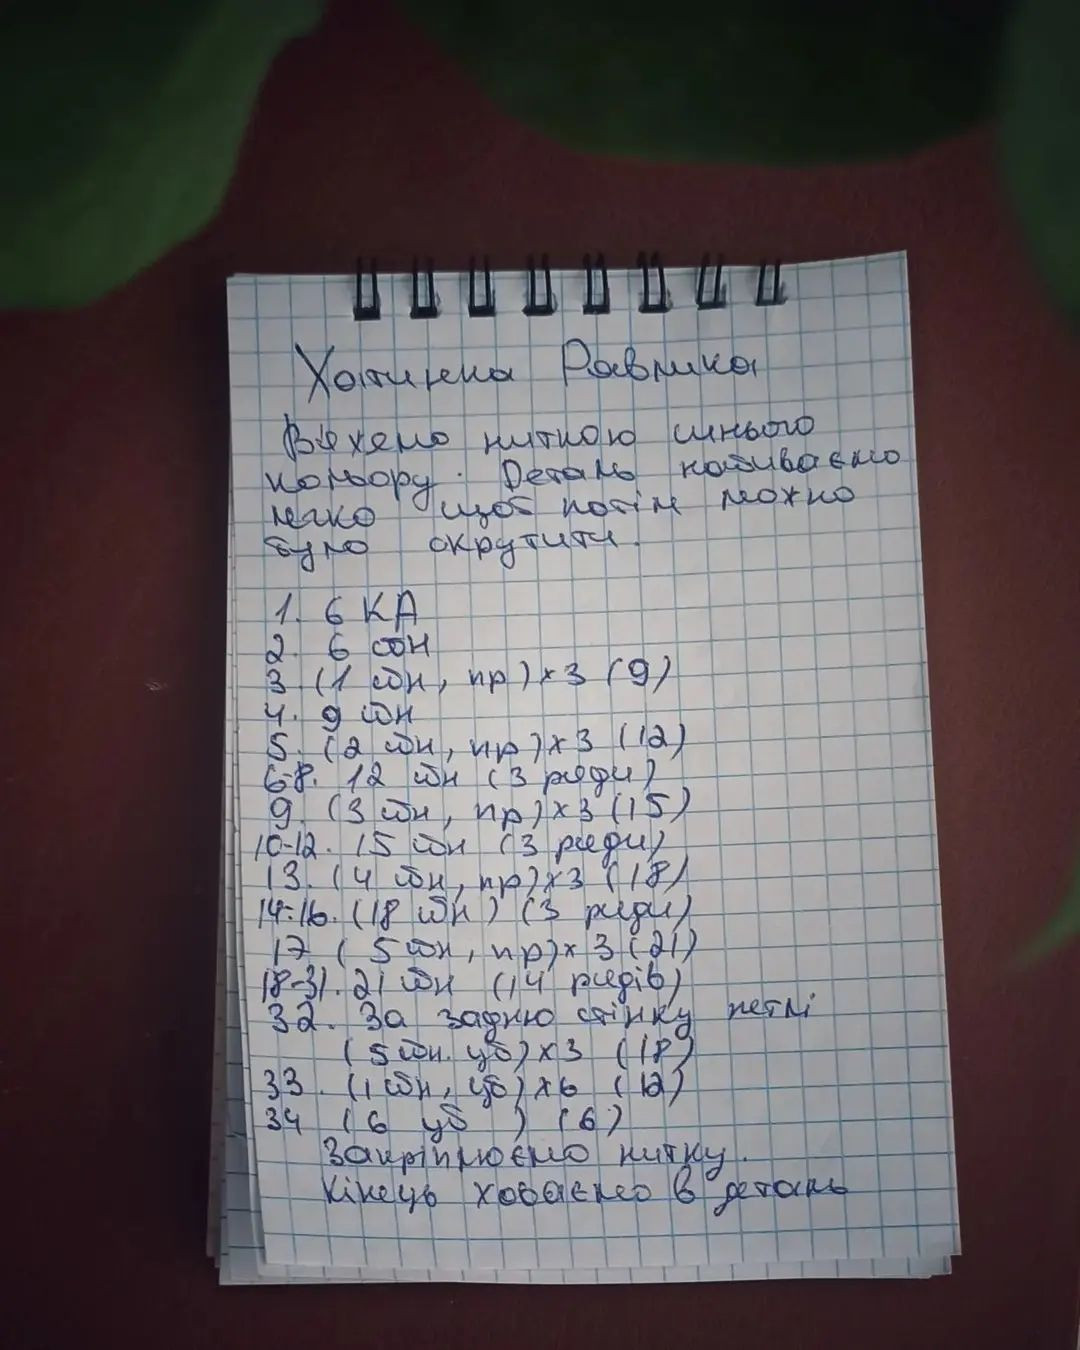 Хатинка Равлика
В'яжемо ниткою синього
кольору. Деталь набиваємо
легко щоб потім можно
було скрутити.
1. 6 КА
2. 6 сбн
3 (1 сбн, пр)х3 (9)
4. 9 сбн
5. (2 сбн, пр)х3 (12)
6-8. 12 сбн (3 ряди)
9. (3 сбн, пр)х3 (15)
10-12. 15 сбн (3 ряди)
13. (4 сбн, пр)х3 (18)
14-16. (18 сбн) (3 ряди)
17 (5 сбн, пр)х3 (21)
18-31. 21 сбн (14 рядів)
32. За задню стінку петлі
(5 сбн. уб)х3 (18)
33. (1 сбн, уб)х6 (12)
34 (6 уб) (6)
Закріплюємо нитку.
Кінець ховаємо в деталь